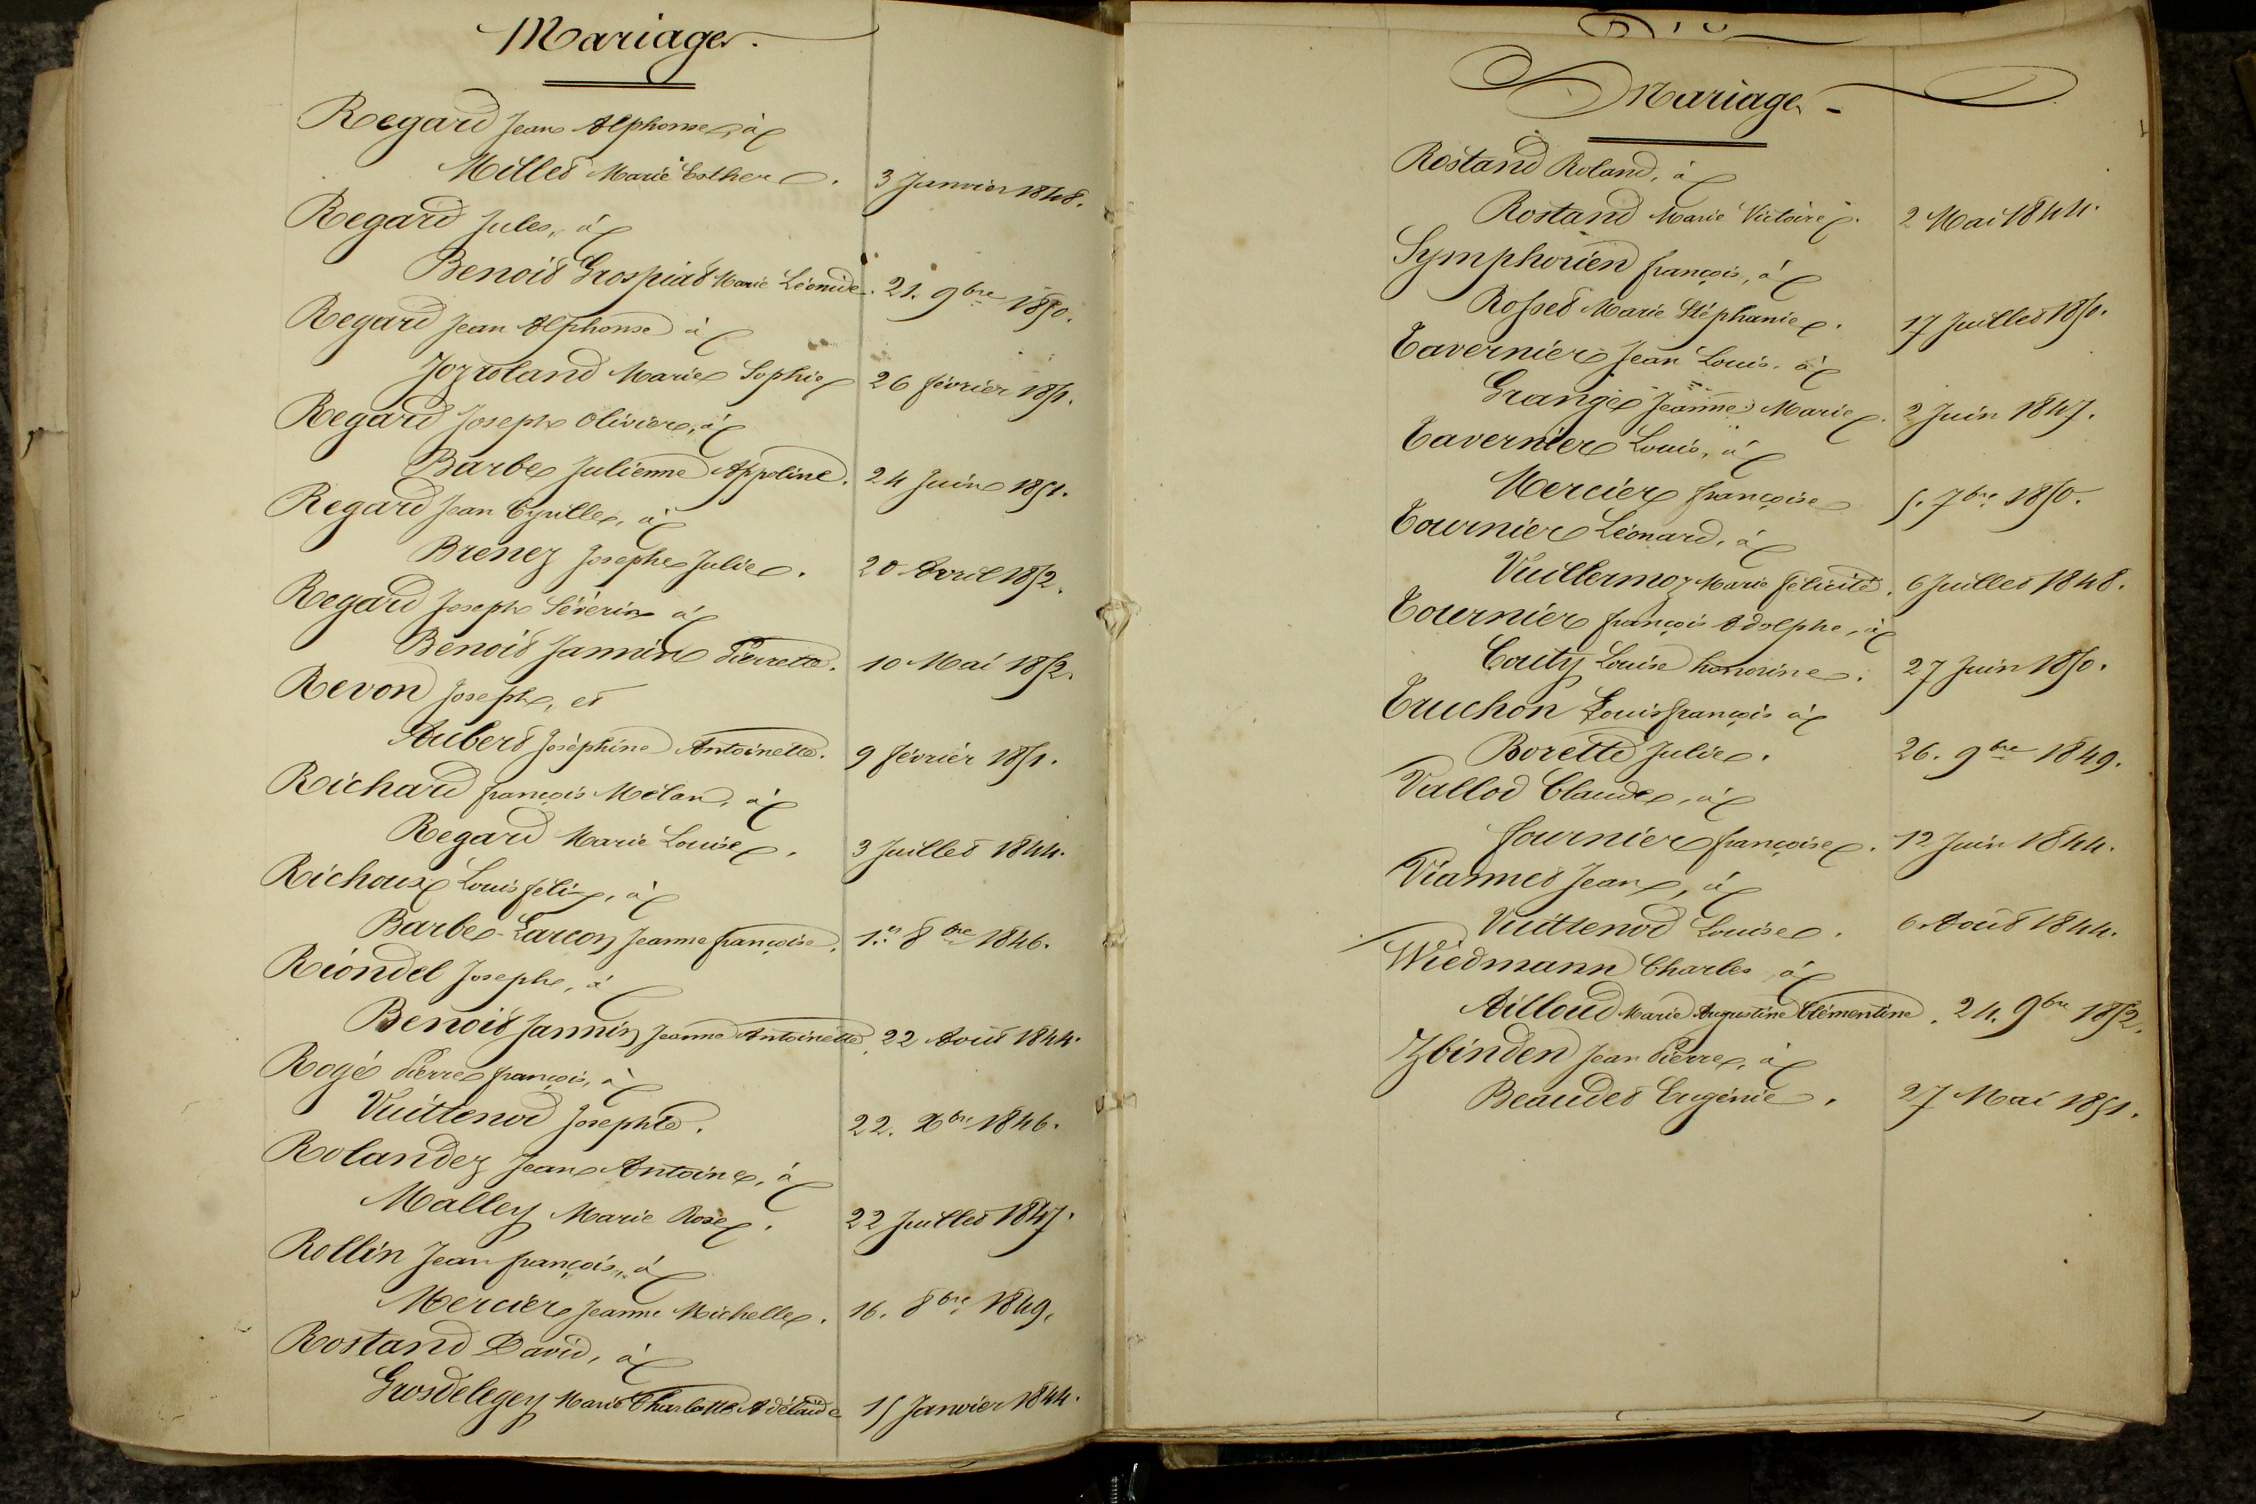 Mariages.
Regard Jean Alphonse, à
Millet Marie Esther. 3 Janvier 1848.
Regard Jules, à
Benoit Grospiat Marie Léonide. 21. 9bre 1850.
Regard Jean Alphonse à
Jozroland Marie Sophie 26 février 1851.
Regard Joseph Olivier, à
Barbe Julienne Appoline. 24 Juin 1851.
Regard Jean Cyrille, à
Brenez Josephe Julie. 20 Avril 1852.
Regard Joseph Séverin à
Benoit Jannin Pierrette. 10 Mai 1852.
Revon Joseph, et
Aubert Joséphine Antoinette. 9 février 1851.
Richard françois Mélan, à
Regard Marie Louise. 3 Juillet 1844.
Richoux Louis félix, à
Barbe-Larcoz Jeanne françoise. 1er 8bre 1846.
Riondel Joseph, à
Benoit Jannin Jeanne Antoinette, 22 Août 1844.
Rogé Pierre françois, à
Vuittenod Josephte. 22. Xbre 1846.
Rolandez Jean Antoine, à
Malley Marie Rose. 22 Juillet 1847.
Rollin Jean françois, à
Mercier Jeanne Michelle. 16. 8bre 1849.
Rostand David, à
Grosdelegey Marie Charlotte Adélaïde 15 Janvier 1844.
Mariages
Rostand Roland, à
Rostand Marie Victoire. 2 Mai 1844.
Symphorien françois, à
Rosset Marie Stéphanie. 17 Juillet 1850.
Tavernier Jean Louis. à
Grange Jeanne Marie. 2 Juin 1847.
Tavernier Louis, à
Mercier françoise 5. 7bre 1850.
Tournier Léonard, à
Vuillermoz Marie félicité. 6 Juillet 1848.
Tournier françois Adolphe, à
Couty Louise honorine. 27 Juin 1850.
Truchon Louis françois à
Borette Julie. 26. 9bre 1849.
Vallod Claude, à
fournier françoise. 12 Juin 1844.
Viannet Jean, à
Vuittenod Louise. 6 Août 1844.
Wiedmann Charles à
Ailloud Marie Augustine Clémentine. 24. 9bre 1852.
Zbinden Jean Pierre, à
Beaudet Eugénie. 27 Mai 1851.